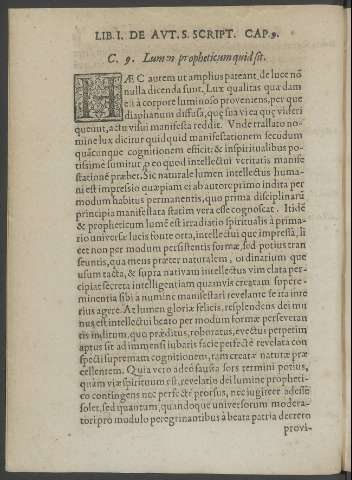 LIB. I. DE AVT. S. SCRIPT. CAP. 9.
C. 9. Lumen propheticum quid sit.
HÆC autem ut amplius pateant, de luce nõ
nulla dicenda sunt. Lux qualitas quædam
est à corpore luminoso proveniens, per quę
diaphanum diffusa, quę sua vi ea quę videri
queunt, actu visui manifesta reddit. Vnde trallato no
mine lux dicitur quidquid manifestationem secũdum
quãcunque cognitionem efficit; & in spiritualibus po-
tissime sumitur pro eo quod intellectui veritatis manife
stationẽ præbet. Sic naturale lumen intellectus huma-
ni est impressio quæpiam ei ab autore primo indita per
modum habitus permanentis, quo prima disciplinarũ
principia manifestata statim vera esse cognoscat. Itidẽ
& propheticum lumẽ est irradiatio spiritualis à prima-
rio universæ lucis fonte orta, intellectui que impressa, li
cet non per modum persistentis formæ, sed potius tran
seuntis, qua mens præter naturalem, ordinarium que
usum tacta, & supra nativam intellectus vim elata per-
cipiat secreta intelligentiam quamvis creatam superę-
minentia sibi à numine manifestari revelante se ita inte
rius agere. At lumen gloriæ felicis, resplendens dei mu
nus est intellectui beato per modum formæ perseveran
tis inditum, quo præditus, roboratus, evectus perperim
aptus sit ad immensi iubaris facie perfectè revelata con
spectũ supremam cognitionem, tam creatæ naturæ præ
cellentem. Quia vero adeò fausta sors termini potius,
quàm viæ spirituum est, revelatio dei lumine propheti-
co contingens nec perfectè prorsus, nec iugiter adesse
solet, sed quantum, quandoque universorum modera-
tori pro modulo peregrinantibus à beata patria decretn
provi-